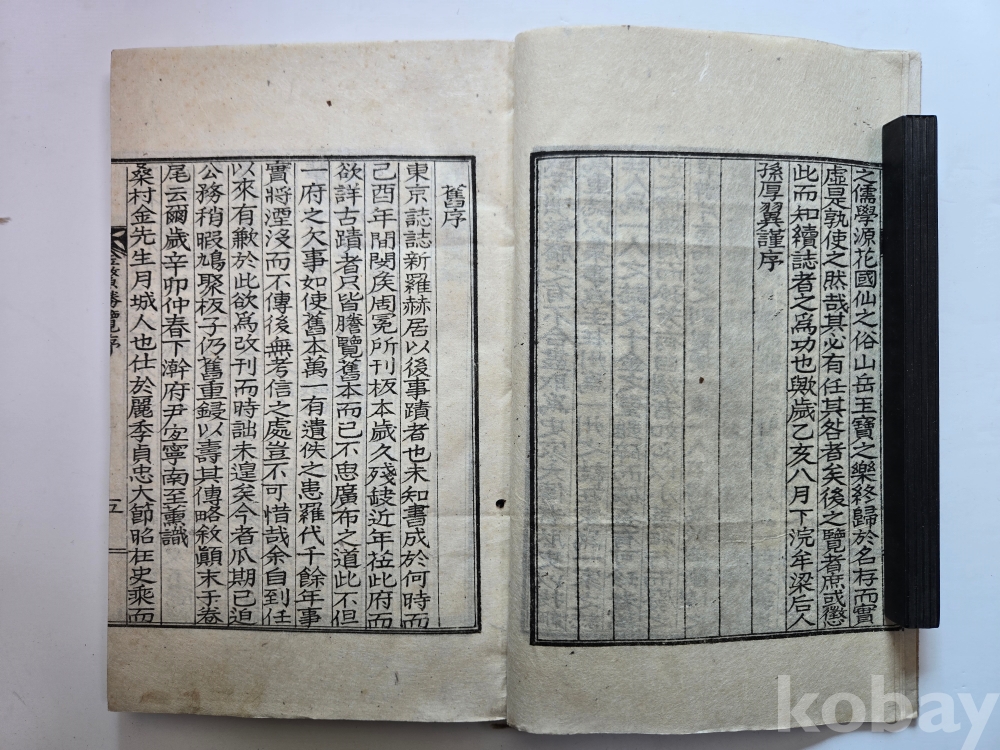 之儒學源花國仙之俗山岳玉寶之樂終歸於名存而實
虛是孰使之然哉其必有任其咎者矣後之覽者庶或懲
此而知續誌者之爲功也歟歲乙亥八月下浣牟梁后人
孫厚翼謹序
舊序
東京誌誌新羅赫居以後事蹟者也未知書成於何時而
己酉年間閔矦周冕所刊板本歲久殘缺近年莅此府而
欲詳古蹟者只皆謄覽舊本而已不思廣布之道此不但
一府之欠事如使舊本萬一有遺佚之患羅代千餘年事
實將湮沒而不傳後無考信之處豈不可惜哉余自到任
以來有歉於此欲爲改刊而時詘未遑矣今者瓜期已迫
公務稍暇鳩聚板子仍舊重鋟以壽其傳略敘顚末于卷
尾云爾歲辛卯仲春下澣府尹宜寧南至薰識
桑村金先生月城人也仕於麗季貞忠大節昭在史乘而
勝覽序
五
kobay